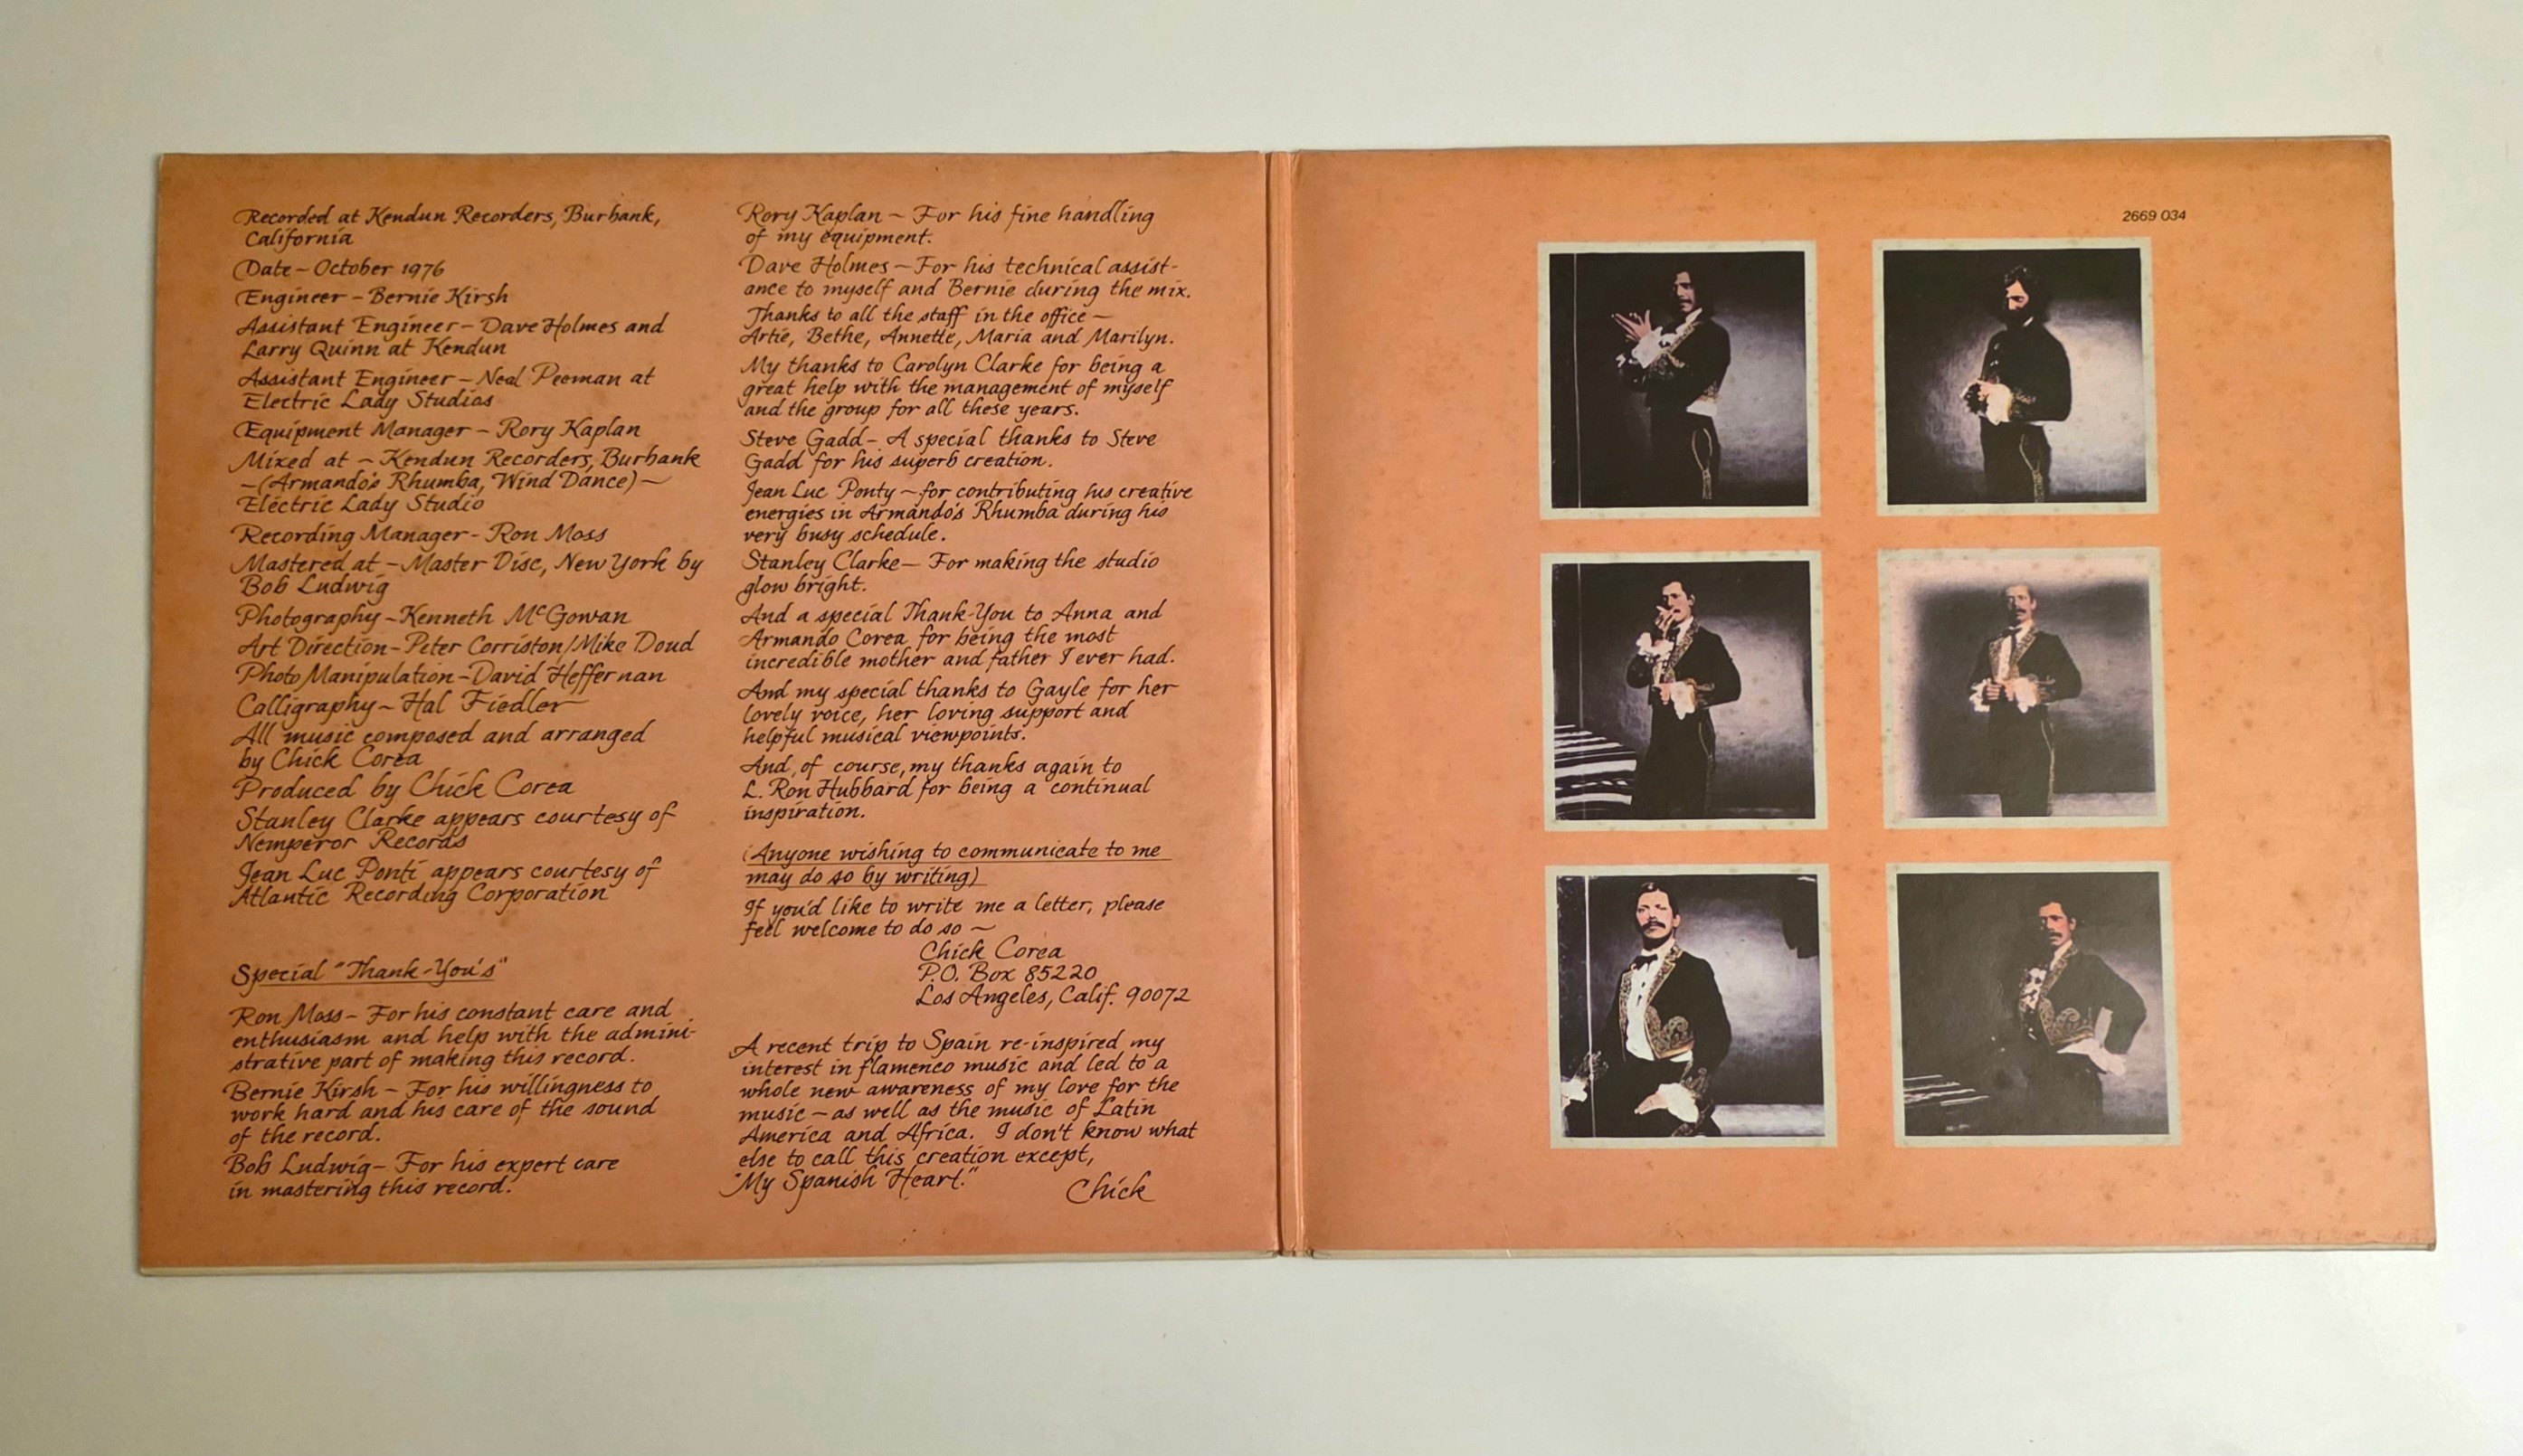 Recorded at Kendun Recorders, Burbank,
California
Date – October 1976
Engineer – Bernie Kirsh
Assistant Engineer – Dave Holmes and
Larry Quinn at Kendun
Assistant Engineer – Neal Peeman at
Electric Lady Studios
Equipment Manager – Rory Kaplan
Mixed at – Kendun Recorders, Burbank
–(Armando's Rhumba, Wind Dance)–
Electric Lady Studio
Recording Manager - Ron Moss
Mastered at – Master Disc, New York by
Bob Ludwig
Photography – Kenneth McGowan
Art Direction – Peter Corriston/Mike Doud
Photo Manipulation – David Heffernan
Calligraphy – Hal Fiedler
All music composed and arranged
by Chick Corea
Produced by Chick Corea
Stanley Clarke appears courtesy of
Nemperor Records
Jean Luc Ponti appears courtesy of
Atlantic Recording Corporation
Special "Thank-You's"
Ron Moss – For his constant care and
enthusiasm and help with the admini-
strative part of making this record.
Bernie Kirsh – For his willingness to
work hard and his care of the sound
of the record.
Bob Ludwig – For his expert care
in mastering this record.
Rory Kaplan – For his fine handling
of my equipment.
Dave Holmes – For his technical assist-
ance to myself and Bernie during the mix.
Thanks to all the staff in the office –
Artie, Bethe, Annette, Maria and Marilyn.
My thanks to Carolyn Clarke for being a
great help with the management of myself
and the group for all these years.
Steve Gadd – A special thanks to Steve
Gadd for his superb creation.
Jean Luc Ponty – for contributing his creative
energies in Armando's Rhumba during his
very busy schedule.
Stanley Clarke – For making the studio
glow bright.
And a special Thank-You to Anna and
Armando Corea for being the most
incredible mother and father I ever had.
And my special thanks to Gayle for her
lovely voice, her loving support and
helpful musical viewpoints.
And, of course, my thanks again to
L. Ron Hubbard for being a continual
inspiration.
(Anyone wishing to communicate to me
may do so by writing)
If you'd like to write me a letter, please
feel welcome to do so –
Chick Corea
P.O. Box 85220
Los Angeles, Calif. 90072
A recent trip to Spain re-inspired my
interest in flamenco music and led to a
whole new awareness of my love for the
music – as well as the music of Latin
America and Africa. I don't know what
else to call this creation except,
"My Spanish Heart."
Chick
2669 034